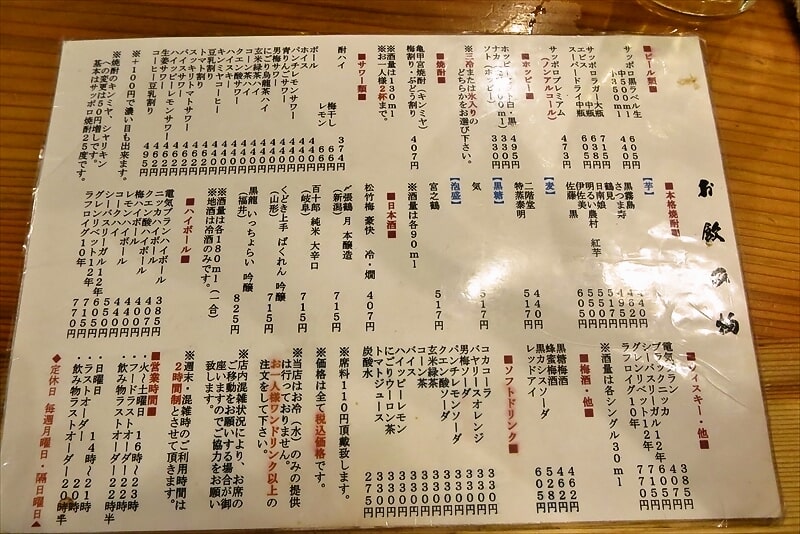 お飲み物
■ビール類■
サッポロ黒ラベル生
中５００ml 605円
小３５０ml 405円
サッポロラガー大瓶 715円
エビス 中瓶 638円
スーパードライ 中瓶 605円
サッポロプレミアム
（ノンアルコール） 473円
■ホッピー■
ホッピーセット 白・黒 495円
ナカ 330円
ソト（ホッピー） 330円
※三冷または氷入りの
どちらかをお選び下さい。
■焼酎■
亀甲宮焼酎（キンミヤ）
梅割り・ぶどう割り 407円
※酒量は１３０ml
※お一人様２杯まで。
■サワー類■
酎ハイ 374円
梅干し 66円
レモン 66円
ボール 440円
ホイス 440円
バンチレモンサワー 440円
青りんごサワー 440円
男梅サワー 440円
にごり烏龍茶ハイ 440円
玄米緑茶ハイ 440円
コーン茶ハイ 440円
クエン酸サワー 440円
ハイッピー 440円
キンミヤコーヒー 440円
豆乳割り 440円
トマト割り 440円
スッキリトマトサワー 462円
バイスサワー 462円
ハイッピーレモンサワー 462円
生姜サワー 462円
コーヒー豆乳割り 495円
※＋１００円で濃い目も出来ます。
※焼酎のキンミヤ、シャリキン
への変更は５０円増しです。
基本はサッポロ焼酎２５度です。
■本格焼酎■
【芋】
黒霧島 440円
さつま寿 495円
鶴見
日南娘
明るい農村 紅芋
伊佐美
佐藤 黒 605円
【麦】
二階堂 440円
特蒸泰明 517円
【黒糖】
気 517円
【泡盛】
宮之鶴 517円
※酒量は各９０ml
■日本酒■
松竹梅 豪快 冷・燗 407円
〆張鶴 月 本醸造
（新潟） 715円
百十郎 純米 大辛口
（岐阜） 715円
くどき上手 ばくれん 吟醸
（山形） 715円
黒龍 いっちょらい 吟醸
（福井） 825円
※酒量は各１８０ml（一合）
※地酒は冷酒のみです。
■ハイボール■
電気ブランハイボール 385円
ニッカハイボール 407円
クエン酸ハイボール 440円
梅ハイボール 440円
レモンハイボール 440円
コークハイボール 440円
シーバスリーガル１２年 550円
グレンリベット１２年 605円
ラフロイグ１０年 770円
■ウィスキー・他■
電気ブラン 385円
ブラックニッカ 407円
シーバスリーガル１２年 605円
グレンリベット１２年 715円
ラフロイグ１０年 770円
※酒量は各シングル３０ml
■梅酒・他■
黒糖梅酒 462円
蜂蜜梅酒 462円
黒カシスソーダ 528円
レッドアイ 605円
■ソフトドリンク■
コカコーラ 330円
バヤリースオレンジ 330円
男梅ソーダ 330円
バンチレモンソーダ 330円
クエン酸ソーダ 330円
玄米緑茶 330円
コーン茶 330円
バイス 330円
ハイッピーレモン 330円
にごりウーロン茶 330円
トマトジュース 330円
炭酸水 275円
※席料１１０円頂戴致します。
※価格は全て税込価格です。
※当店はお冷（水）のみの提供
は行っておりません。
お一人様ワンドリンク以上の
注文をして下さい。
※店内混雑状況により、お席の
ご移動をお願いする場合が御
座いますのでご協力をお願い
致します。
※週末・混雑時のご利用時間は
２時間制とさせて頂きます。
■営業時間■
・火〜土曜日 １６時〜２３時
・フードラストオーダー２２時
・飲み物ラストオーダー２２時半
・日曜日 １４時〜２１時
・ラストオーダー ２０時
・飲み物ラストオーダー２０時半
◆定休日 毎週月曜日・隔日曜日◆